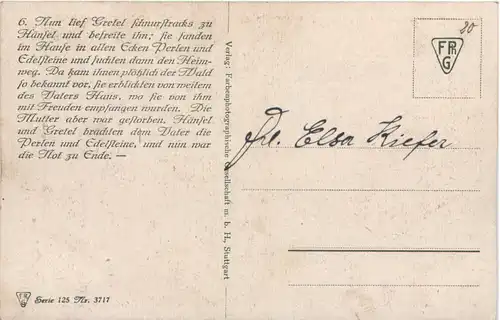 6. Nun lief Gretel schnurstracks zu
Hänsel und befreite ihn; sie fanden
im Hause in allen Ecken Perlen und
Edelsteine und suchten dann den Heim-
weg. Da kam ihnen plötzlich der Wald
so bekannt vor, sie erblickten von weitem
des Vaters Haus, wo sie von ihm
mit Freuden empfangen wurden. Die
Mutter aber war gestorben. Hänsel
und Gretel brachten dem Vater die
Perlen und Edelsteine, und nun war
die Not zu Ende. —
Serie 125 Nr. 3717
Verlag: Farbenphotographische Gesellschaft m. b. H., Stuttgart
80
FPh
G
Frl. Elsa Kiefer